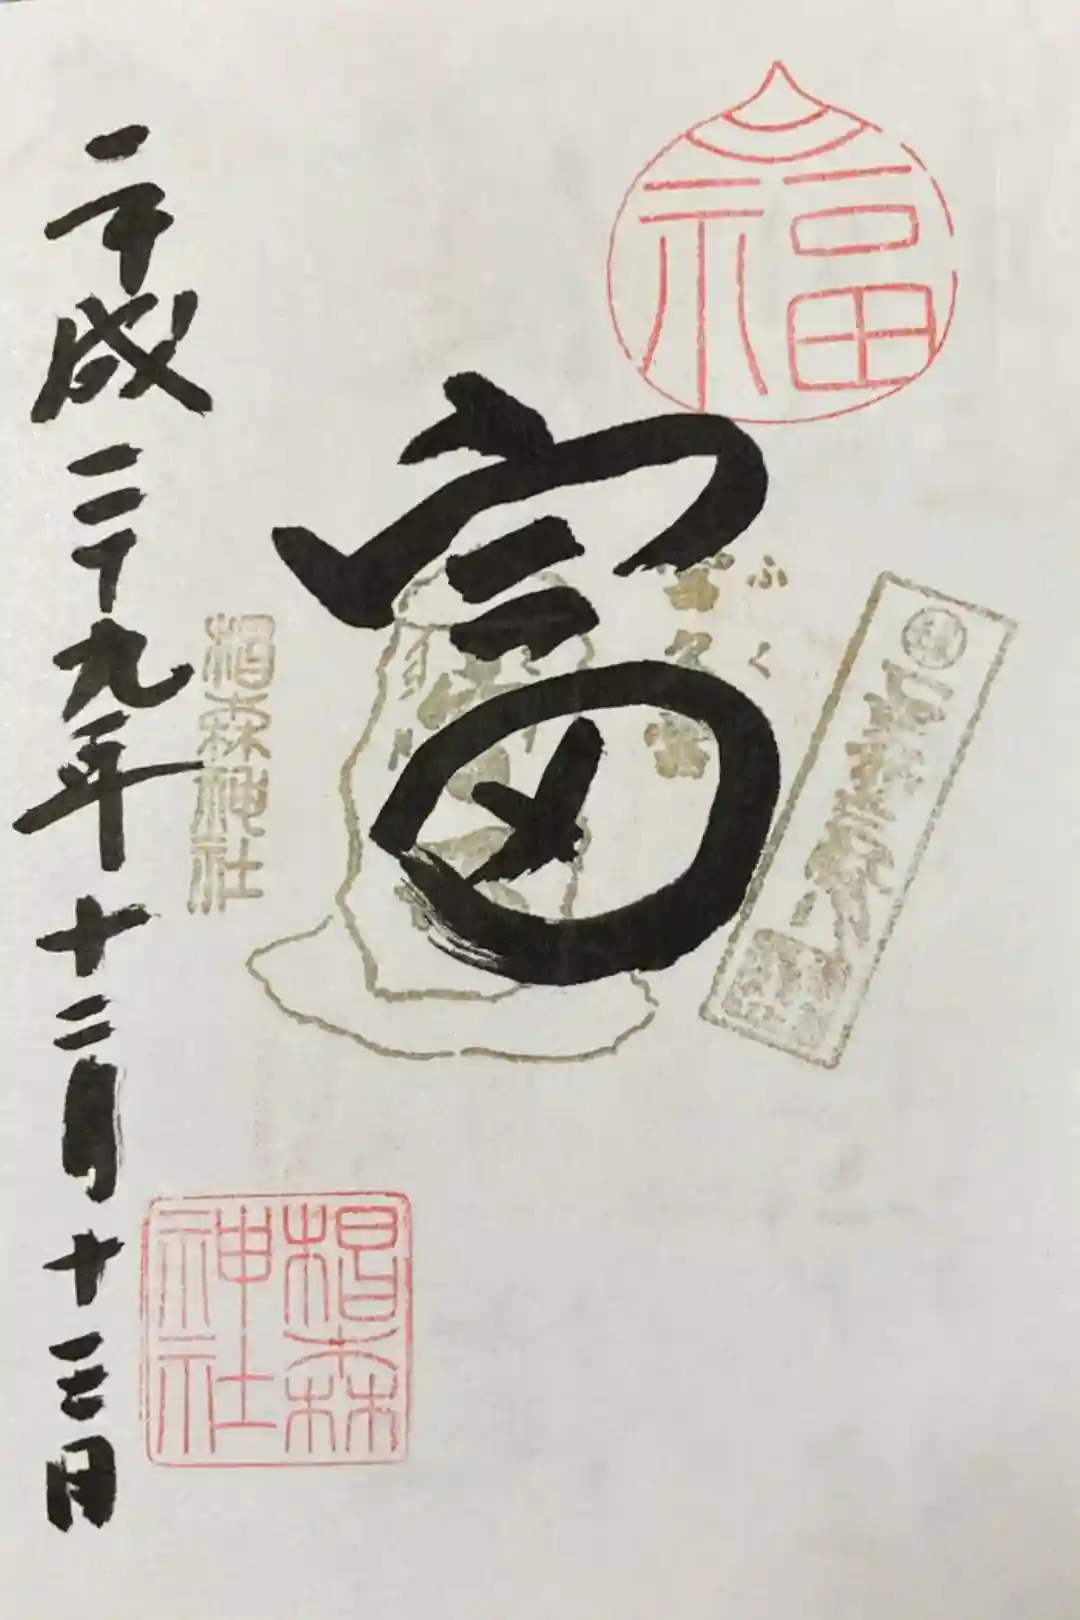 福
富
ふく
富久富
椙森神社
椙森神社
平成二十九年十二月十三日